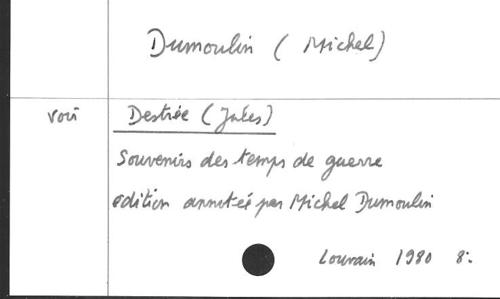 Dumoulin (Michel)
voir Destrée (Jules)
Souvenirs des temps de guerre
édition annotée par Michel Dumoulin
Louvain 1980 8°.